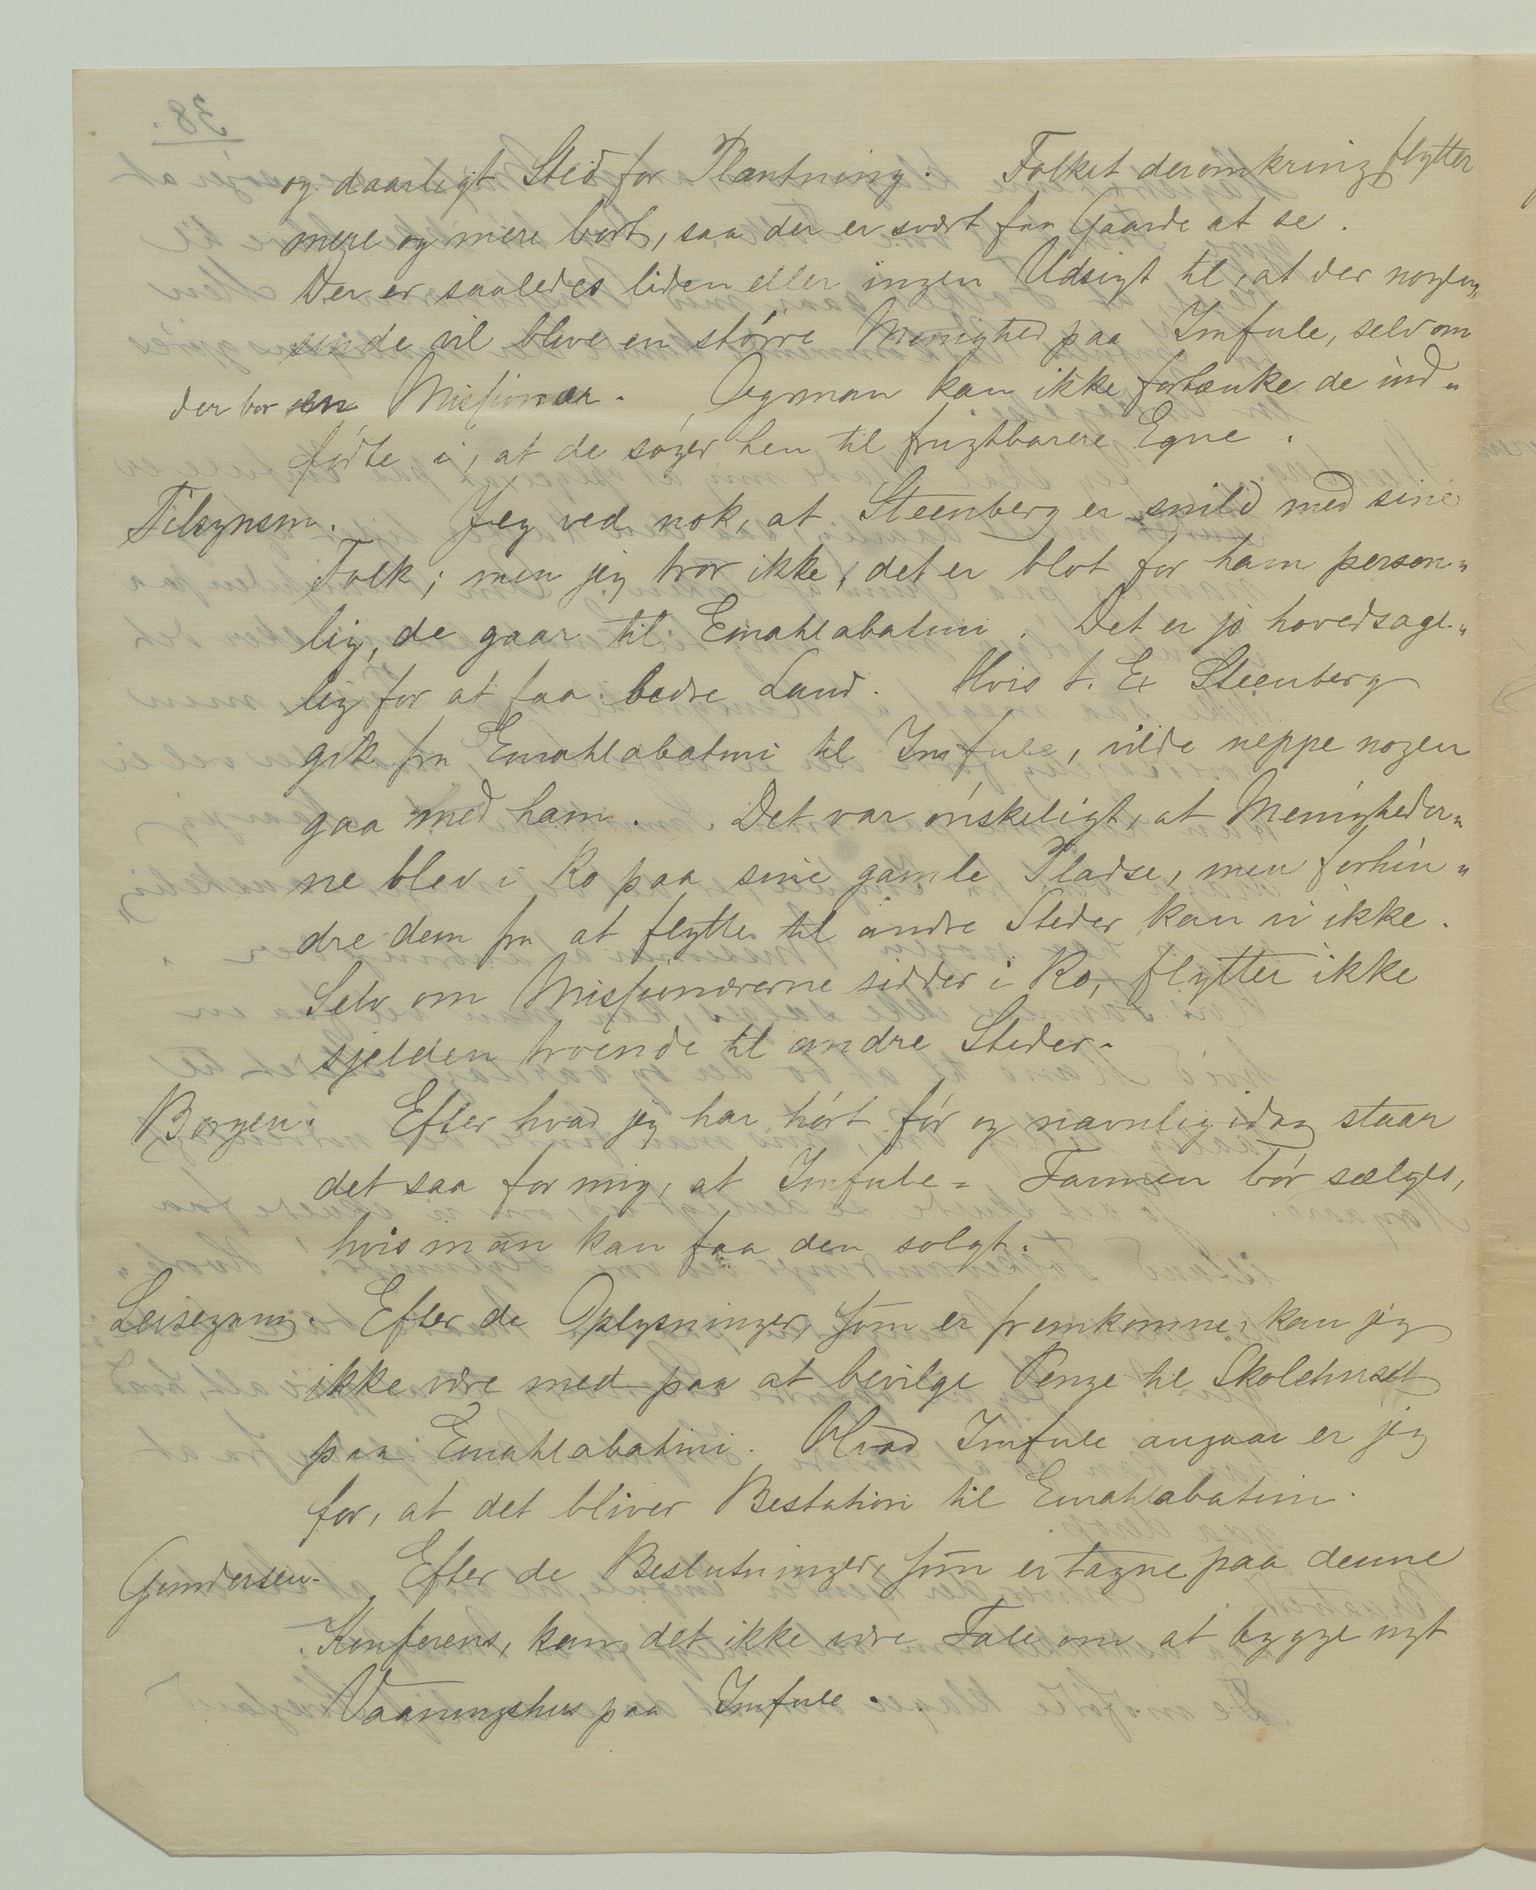 og daarligt Sted for Plantning. Folket deromkring flytter
mere og mere bort, saa der er svært faa Gaarde at se.
Der er saaledes liden eller ingen Udsigt til, at der nogen„
sinde vil blive en større Menighed paa Imfule, selv om
der bor en Missionær. Og man kan ikke fortænke de ind„
fødte i, at de søger hen til frugtbarere Egne.
Tilsynsm. Jeg ved nok, at Steenberg er snild med sine
Folk; men jeg tror ikke, det er blot for ham person„
lig, de gaar til Emahlabatini. Det er jo hovedsage„
lig for at faa bedre Land. Hvis t. Ex Steenberg
gik fra Emahlabatini til Imfule, vilde neppe nogen
gaa med ham. Det var ønskeligt, at Menigheder„
ne blev i Ro paa sine gamle Pladse, men forhin„
dre dem fra at flytte til andre Steder kan vi ikke.
Selv om Missionærerne sidder i Ro, flytter ikke
sjelden troende til andre Steder.
Borgen. Efter hvad jeg har hørt før og navnlig idag staar
det saa for mig, at Imfule-Farmen bør sælges,
hvis man kan faa den solgt.
Leisegang. Efter de Oplysninger, som er fremkomne, kan jeg
ikke være med paa at bevilge Penge til Skolehuset
paa Emahlabatini. Hvad Imfule angaar er jeg
for, at det bliver Bestation til Emahlabatini.
Gundersen. Efter de Beslutninger, som er tagne paa denne
Konferens, kan det ikke være Tale om at bygge nyt
Vaaningshus paa Imfule.